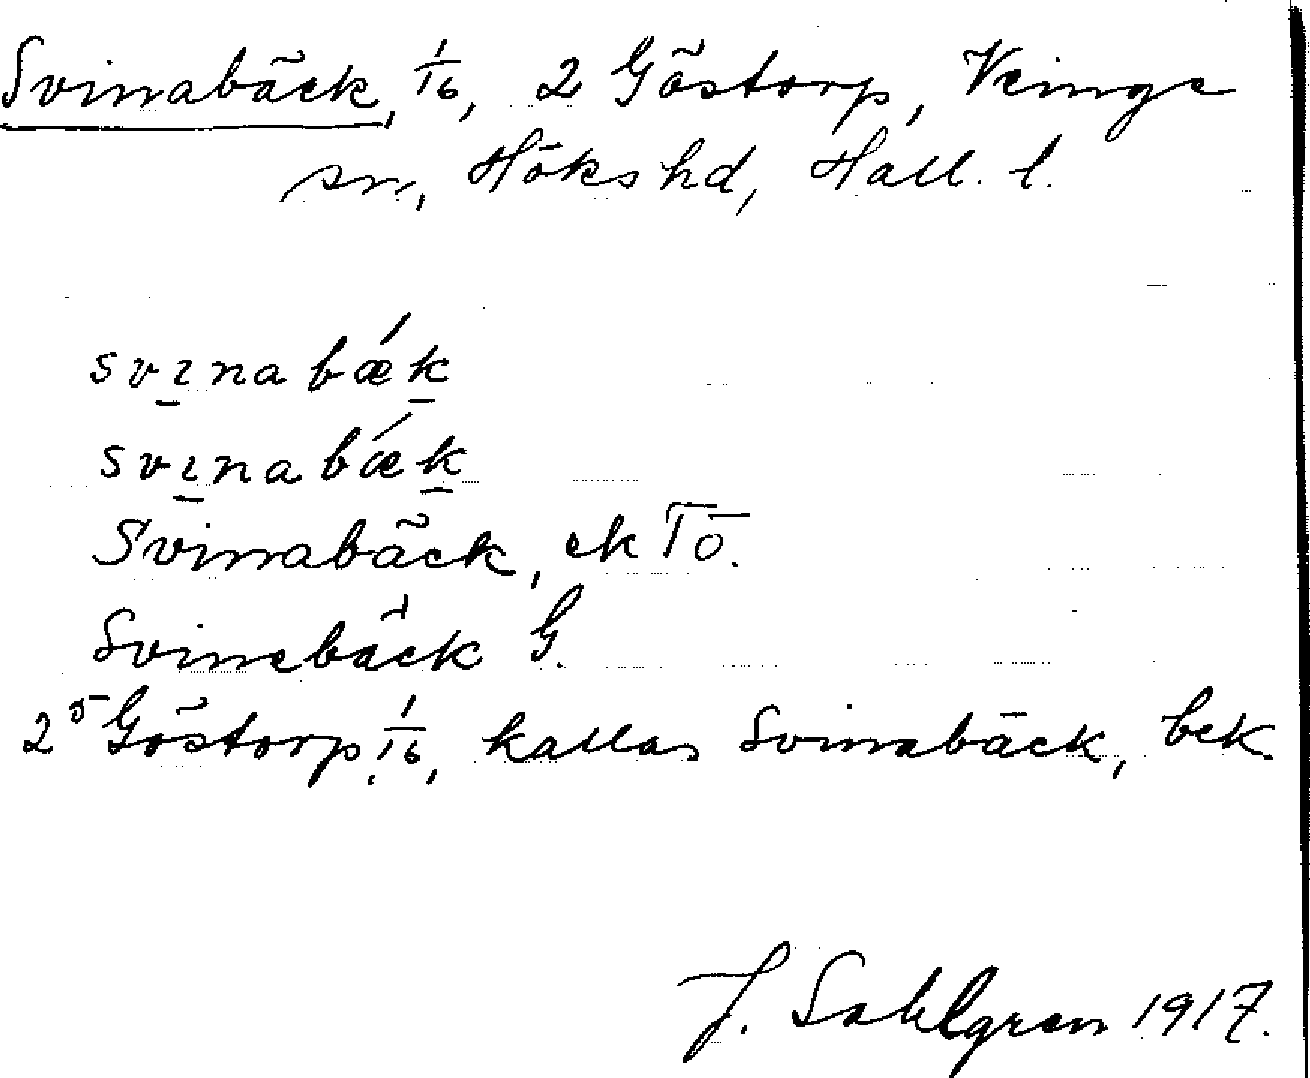 Svinabäck, 1/16, 2 Göstorp, Veinge
sn, Höks hd, Hall. l.
svı̱nabǽḵ
svı̱nabǽḵ
Svinabäck, ek Tö.
Svinebäck G.
2⁵ Göstorp, 1/16, kallas Svinabäck, bek
J. Sahlgren 1917.